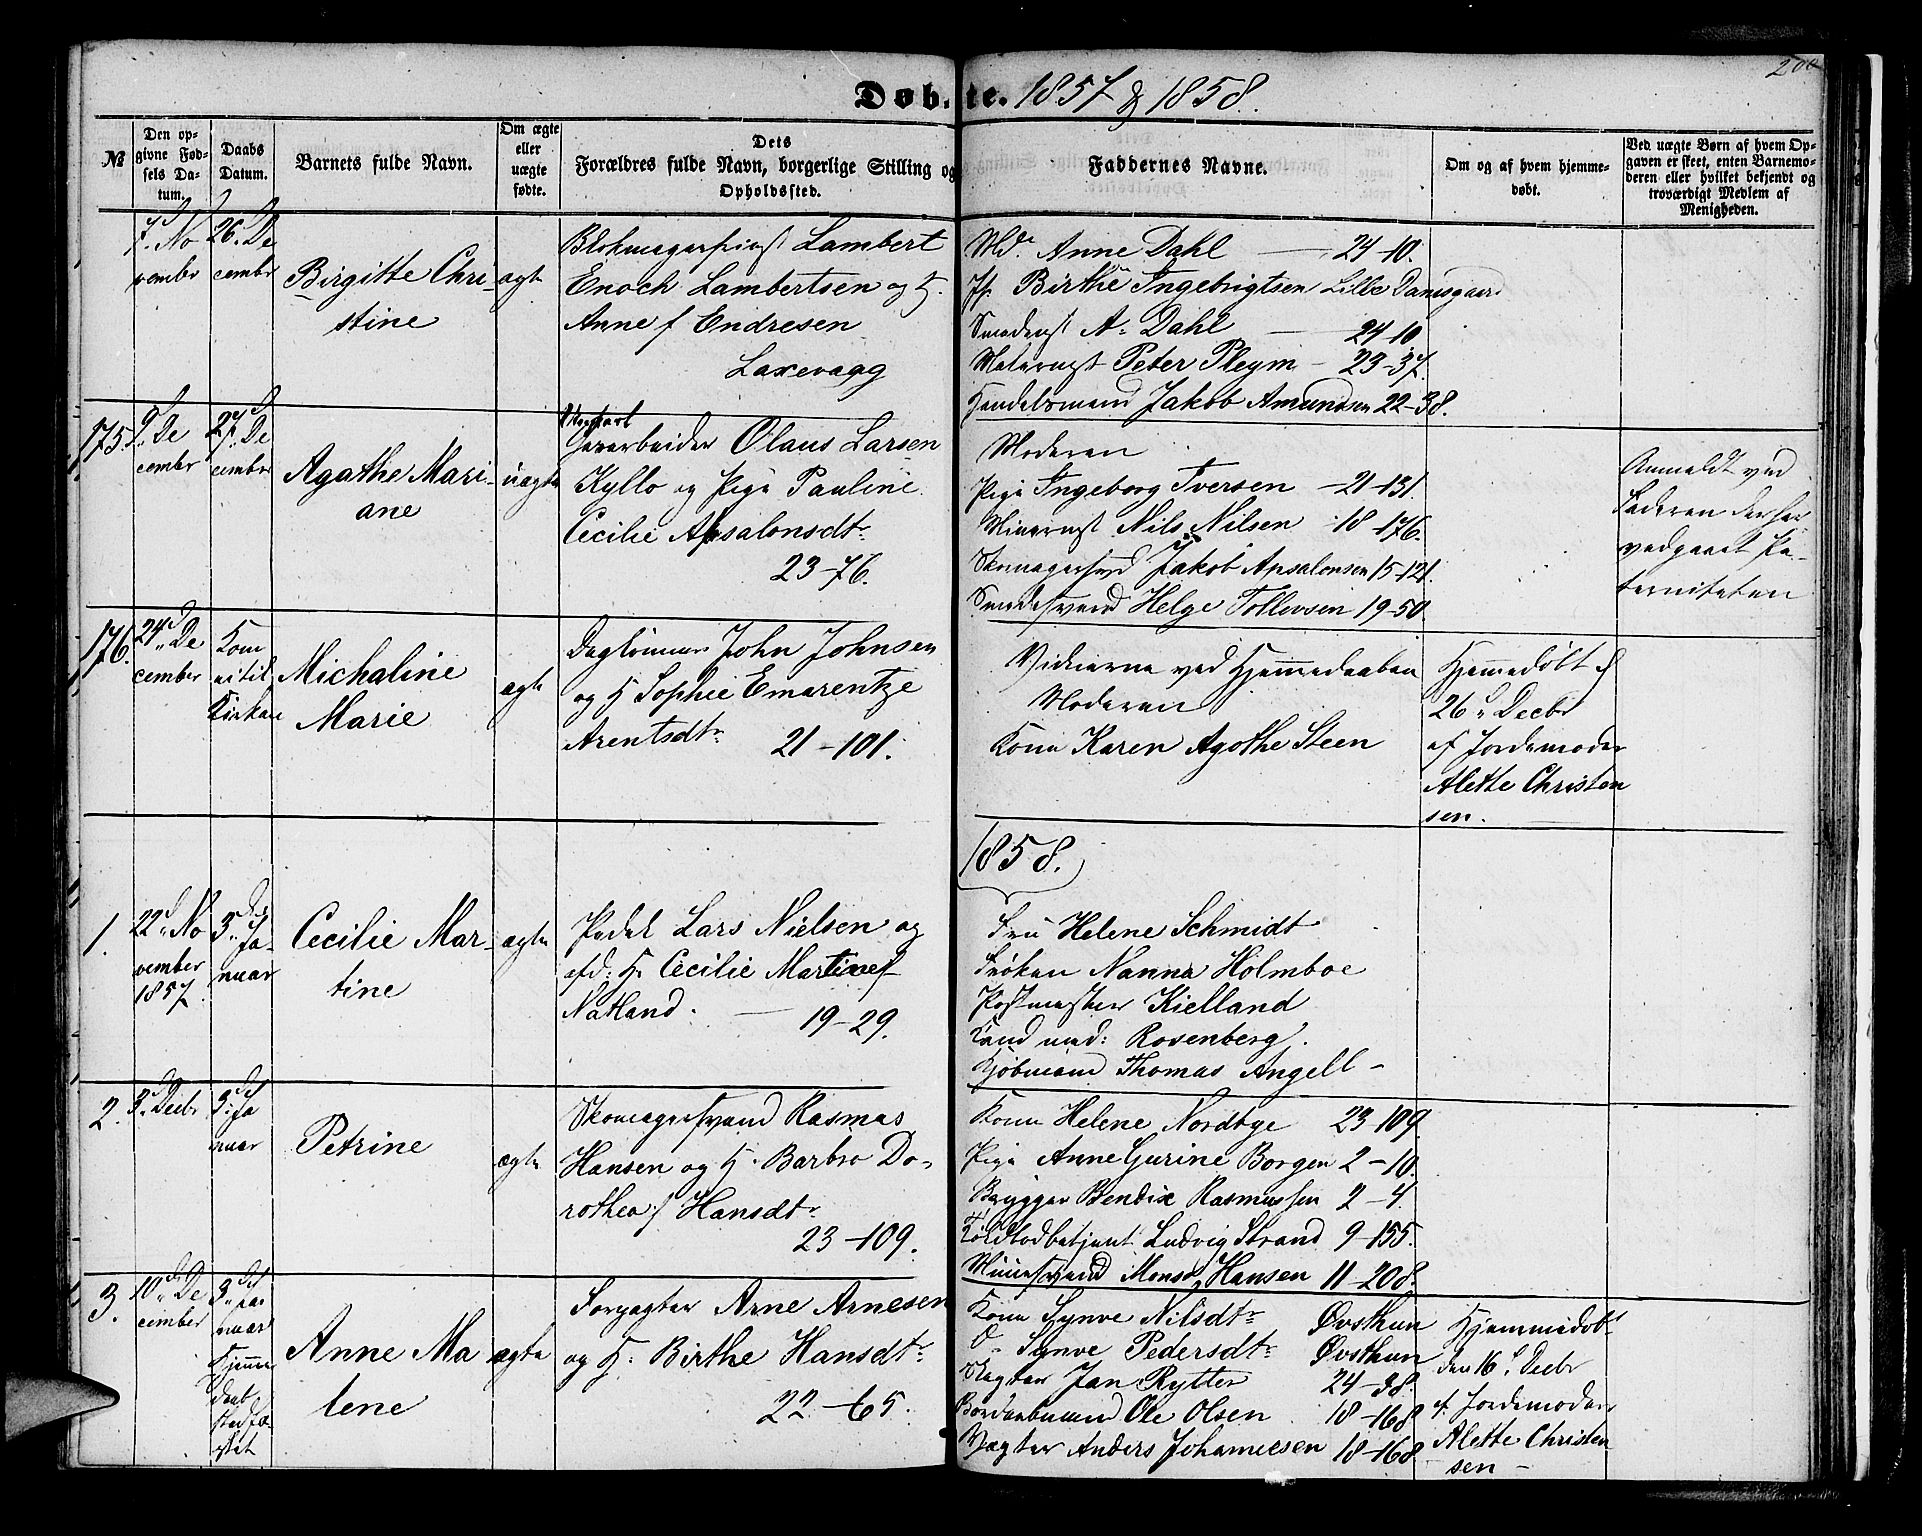 Døbte. 1857 & 1858.
200
№
Den opgivne Fødsels Datum.
Daabs Datum.
Barnets fulde Navn.
Om ægte eller uægte fødte.
Dets Forældres fulde Navn, borgerlige Stilling og Opholdssted.
Faddernes Navne.
Om og af hvem hjemmedøbt.
Ved uægte Børn af hvem Opgaven er skeet, enten Barnemoderen eller hvilket bekjendt og troværdigt Medlem af Menigheden.
7d. No
vember
26d. De
cembr
Birgitte Chri-
stine
ægte
Lambert
Enoch Lambertsen og H.
Anne f Endresen
Laxevaag
Md. Anne Dahl — 24-10.
Jfr. Birthe Ingebrigtsen Lille Damsgaard
A. Dahl — 24-10
Peter Pleym - 23-37.
Handelsmand Jakob Amundsen 22-38.
175.
9d. De
cembr
27d. De
cembr
Agathe Mari-
ane
uægte
Ungkarl
Olaus Larsen
Kyllo og Pige Pauline
Cecilie Apsalonsdtr.
23-76.
Moderen
Pige Ingeborg Iversen - 21-131
Nils Nilsen - 18-176.
Skomagersvend Jakob Apsalonsen 15-121.
Smedesvend Helge Tollevsen 19-50
Anmeldt ved
Faderen der har
vedgaaet Pa-
terniteten
176.
24d. De
cember
Kom
ei til
Kirken
Michaline
Marie
ægte
Daglønner John Johnsen
og H. Sophie Emerentze
Arentsdtr. 21-101.
Vidnerne ved Hjemmedaaben
Moderen
Kone Karen Agathe Steen
Hjemmedøbt d
26d Decbr
af Jordemoder
Alette Christen
sen.
1858.
1.
22d. No
vember
1857.
3die Ja-
nuar
Cecilie Mar-
tine
ægte
Pedel Lars Nielsen og
afd: H. Cecilie Martine f
Natland. — 19-29.
Fru Helene Schmidt
Frøken Nanna Holmboe
Postmester Kielland
Kand med: Rosenberg.
Kjøbmand Thomas Angell -
2.
3d. Decbr
3die Ja
nuar
Petrine
ægte
Skomagersvend Rasmus
Hansen og H. Barbro Do-
rothea f Hansdtr.
23-109.
Kone Helene Nordtge 23-109.
Pige Anne Gurine Borgen 2-10.
Brygger Bendix Rasmussen 2-4.
Toldbodbetjent Ludvig Strand 9-155.
Monso Hansen 11-208.
3.
10d. De
cember
3die Ja
nuar
Hjemme
daab
stadfæ
stet
Anne Ma
lene
ægte
Arne Arnesen
og H. Birthe Hansdtr.
22-65.
Kone Synve Nilsdtr. Øvsthun
D. Synve Pedersdtr. Øvsthun
Vægter Jan Rytter 24-38.
Ole Olsen 18-168
Vægter Anders Johannesen 18-168
Hjemmedøbt
den 16d Decbr
af Jordemoder
Alette Christen
sen -